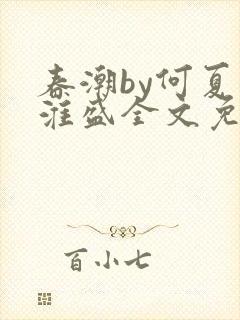 春潮by何夏
淮盛全文免
百小七